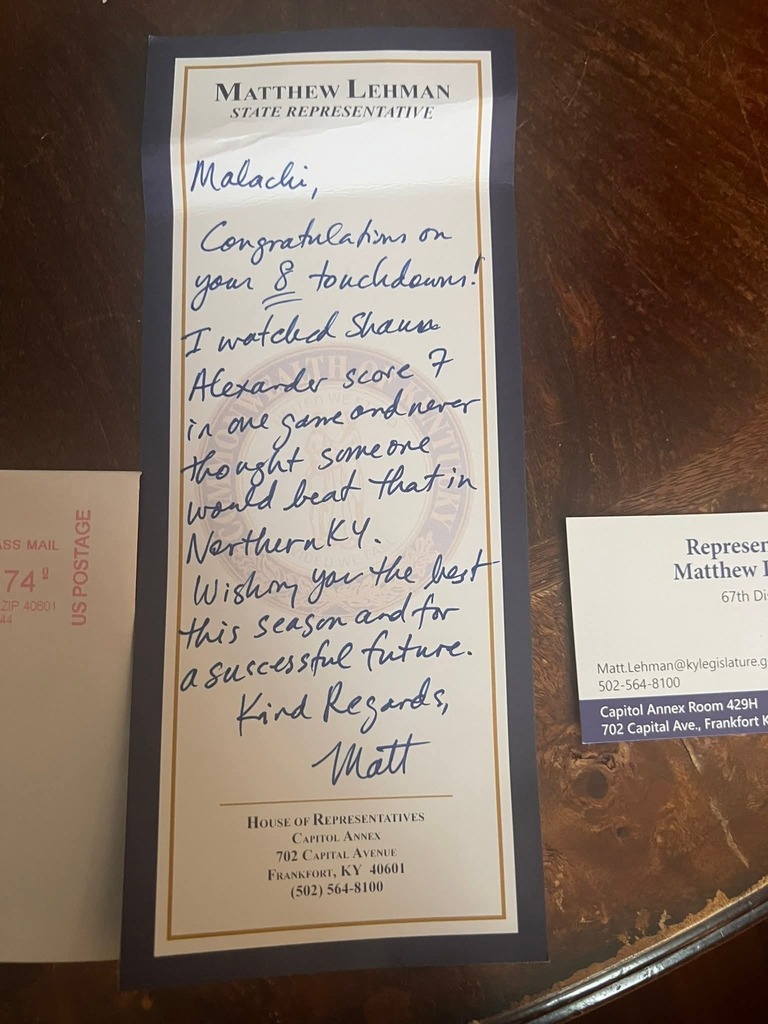 MATTHEW LEHMAN
STATE REPRESENTATIVE
Malachi,
Congratulations on
your 8 touchdowns!
I watched Shaun
Alexander score 7
in one game and never
thought someone
would beat that in
Northern KY.
Wishing you the best
this season and for
a successful future.
Kind Regards,
Matt
HOUSE OF REPRESENTATIVES
CAPITOL ANNEX
702 CAPITAL AVENUE
FRANKFORT, KY 40601
(502) 564-8100
ASS MAIL
74⁰
ZIP 40601
44
US POSTAGE
Represen
Matthew
67th Dis
Matt.Lehman@kylegislature.g
502-564-8100
Capitol Annex Room 429H
702 Capital Ave., Frankfort K